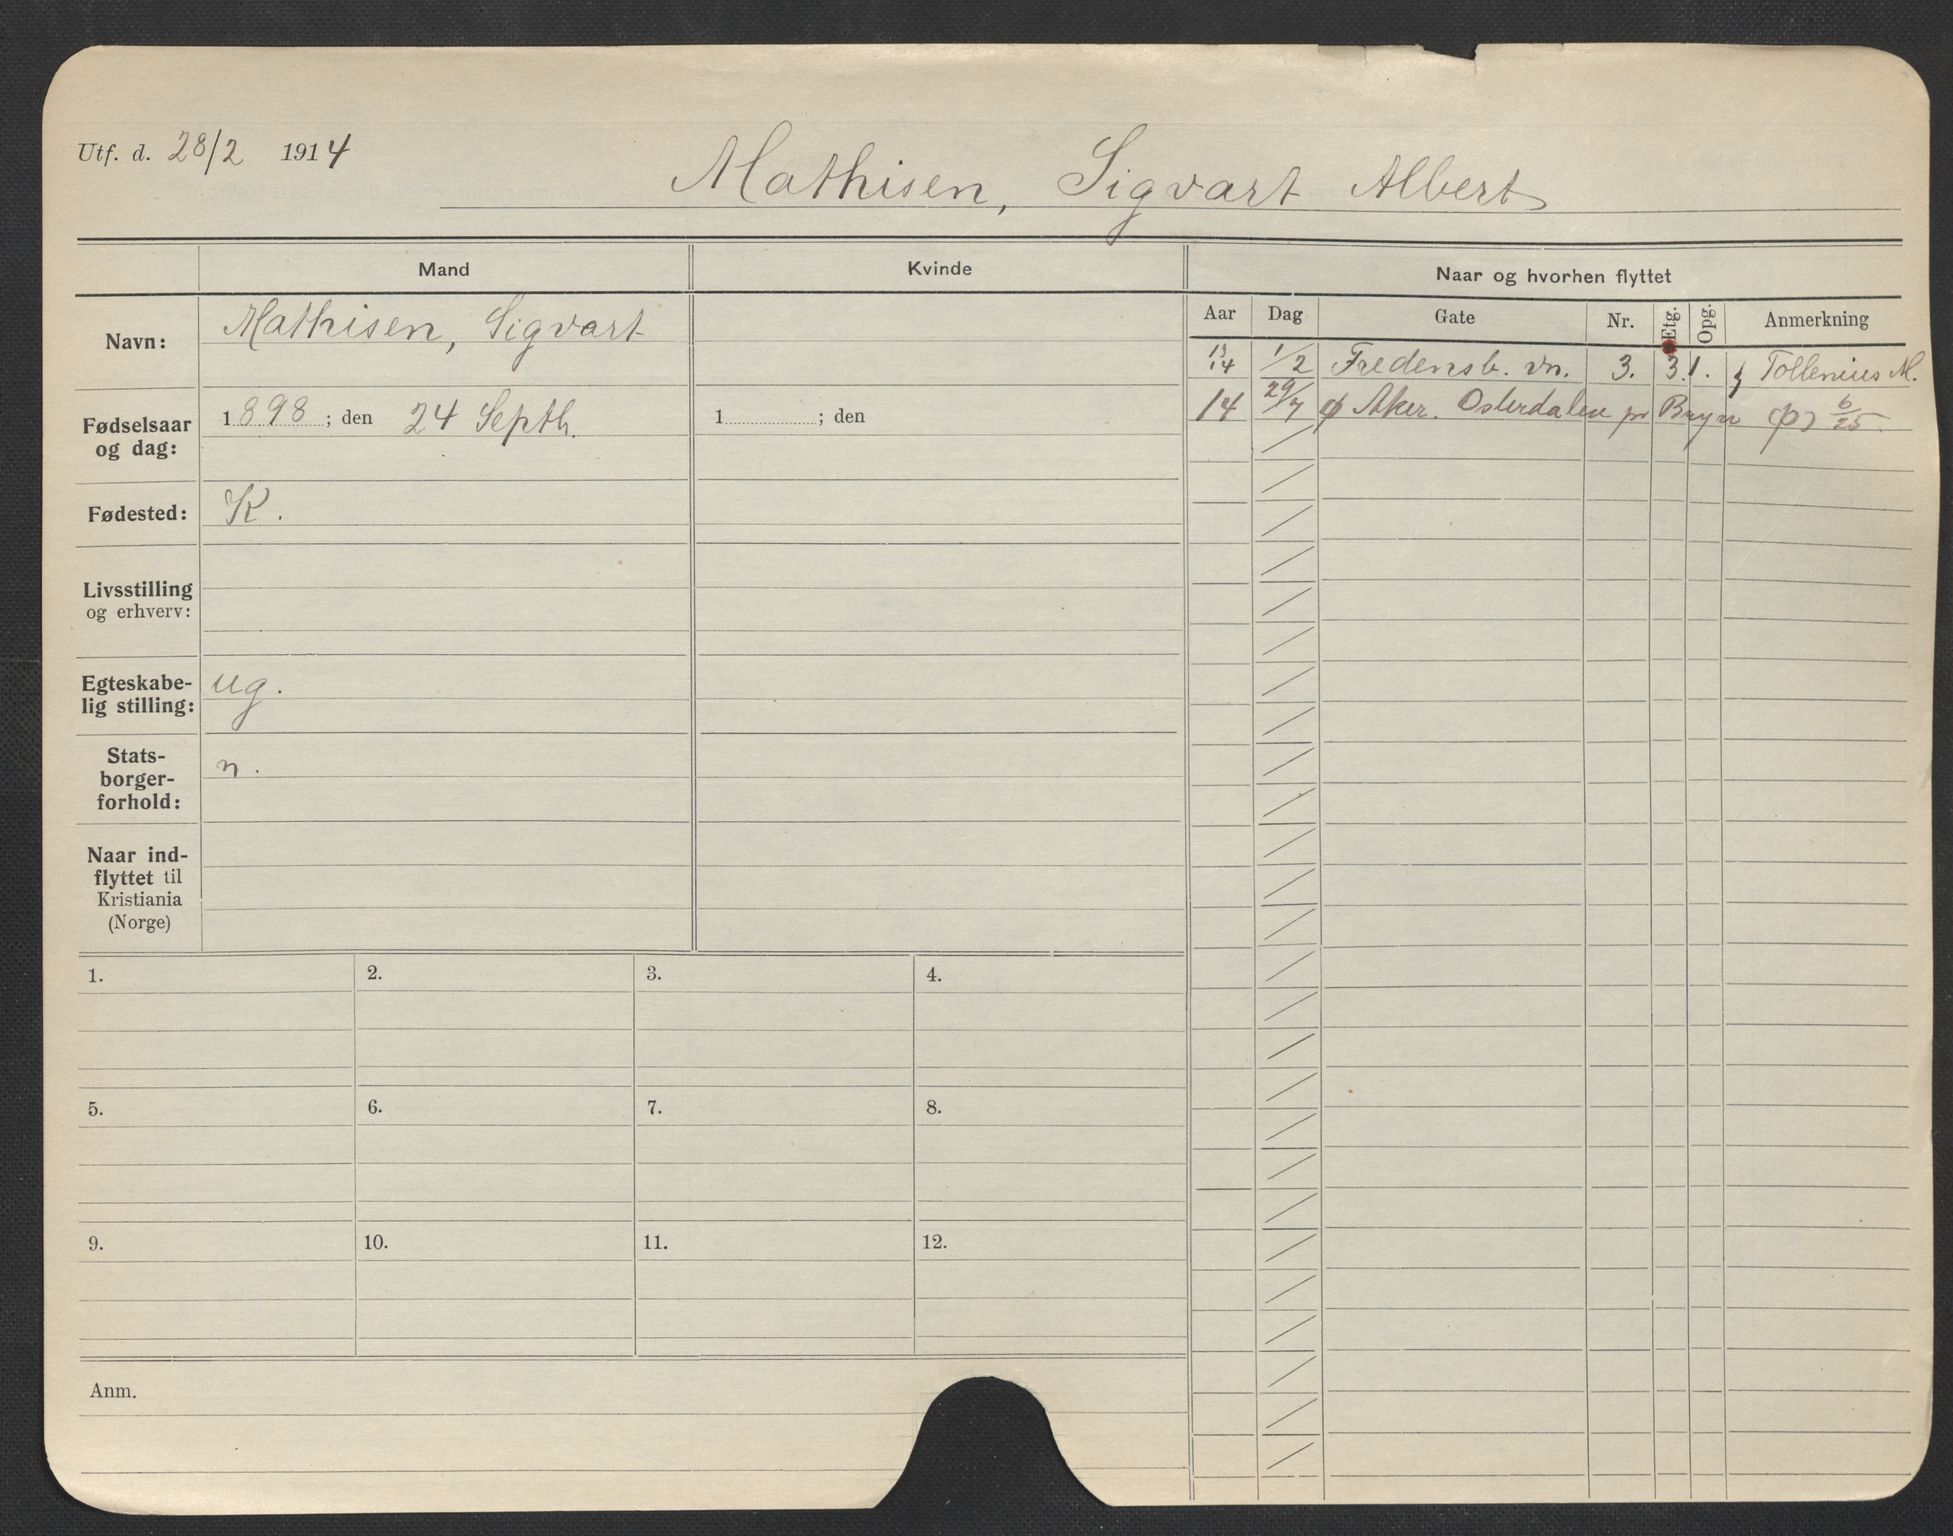 Utf. d. 28/2 1914
Mathisen, Sigvart Albert
Mand
Kvinde
Naar og hvorhen flyttet
Aar Dag Gate Nr. Etg. Opg. Anmerkning
Navn: Mathisen, Sigvart
Fødselsaar og dag: 1898; den 24 Septh. 1 ; den
Fødested: K.
Livsstilling og erhverv:
Egteskabelig stilling: ug.
Statsborgerforhold: n.
Naar indflyttet til Kristiania (Norge)
13/14 1/2 Fredensb. vn. 3. 3. 1. Tollenius M.
14 29/7 Aker. Osterdalen pr Bryn 6/25.
1. 2. 3. 4.
5. 6. 7. 8.
9. 10. 11. 12.
Anm.